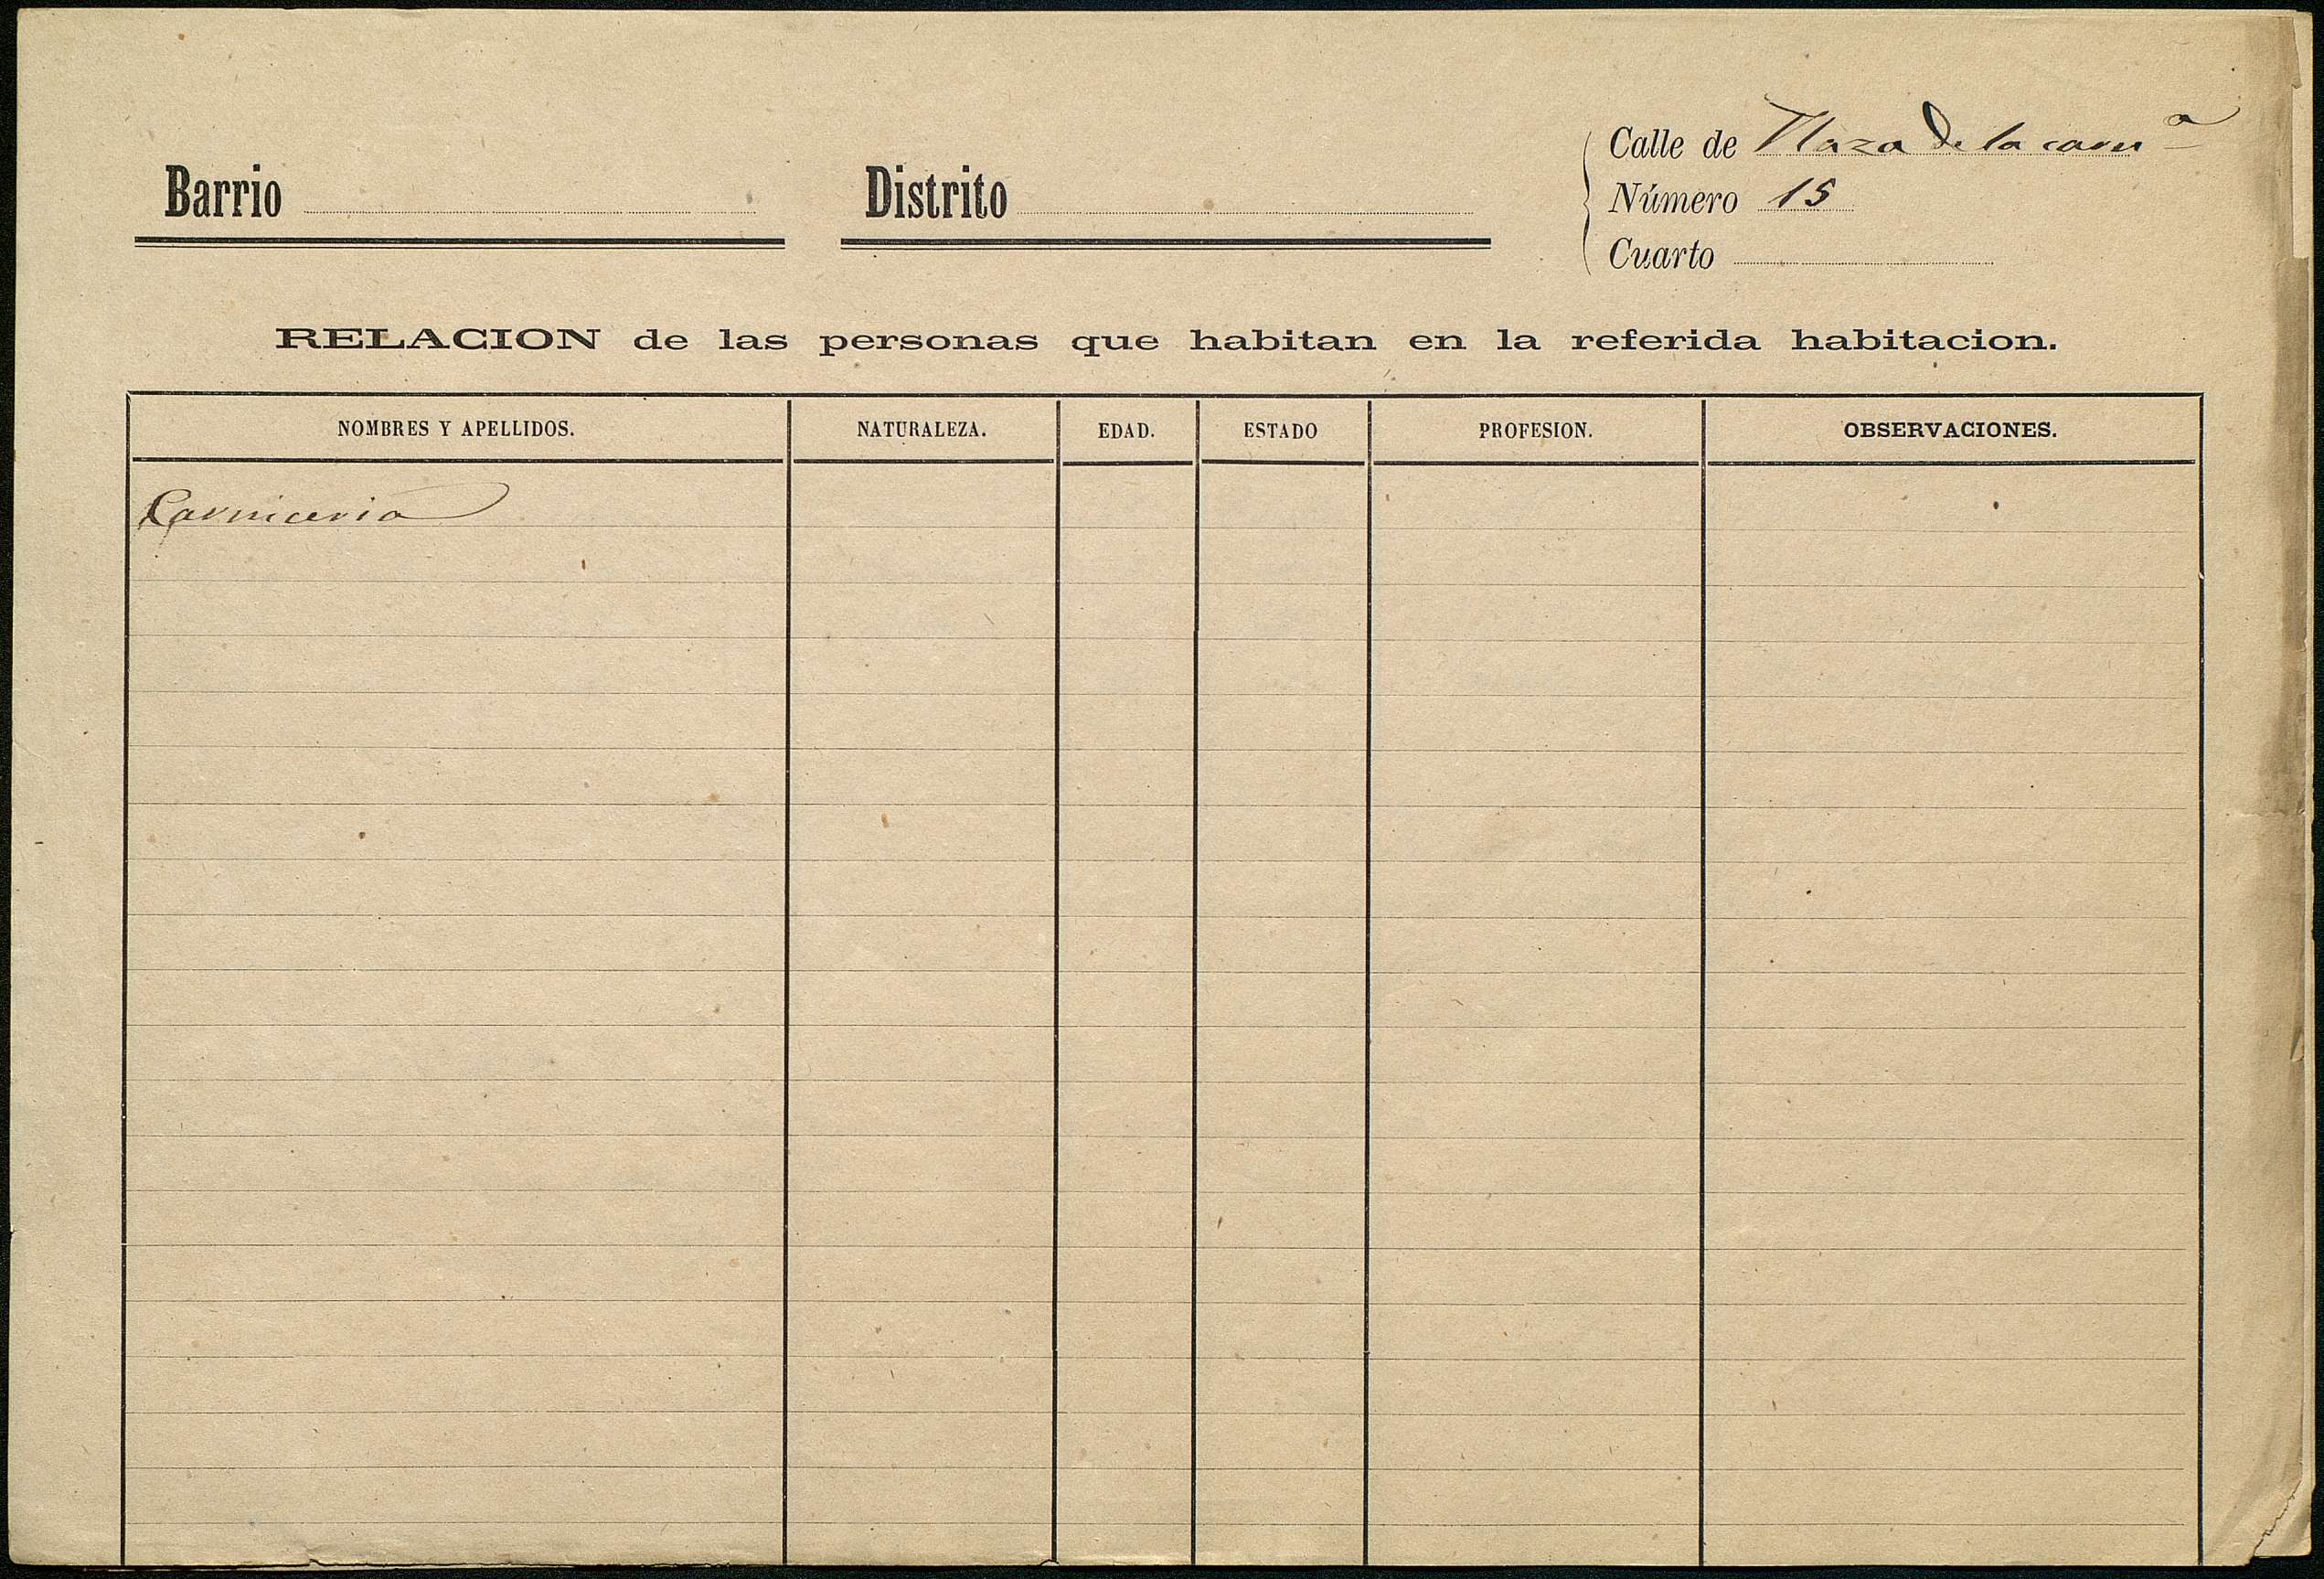 Barrio
Distrito
Calle de Plaza de la carn.ª
Número 15
Cuarto
RELACION de las personas que habitan en la referida habitacion.
NOMBRES Y APELLIDOS.
NATURALEZA.
EDAD.
ESTADO
PROFESION.
OBSERVACIONES.
Carniceria